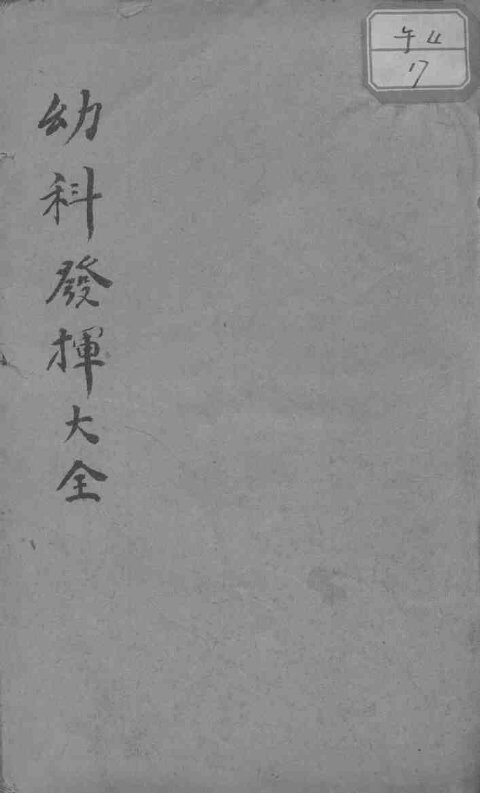 幼科發揮大全
午
17